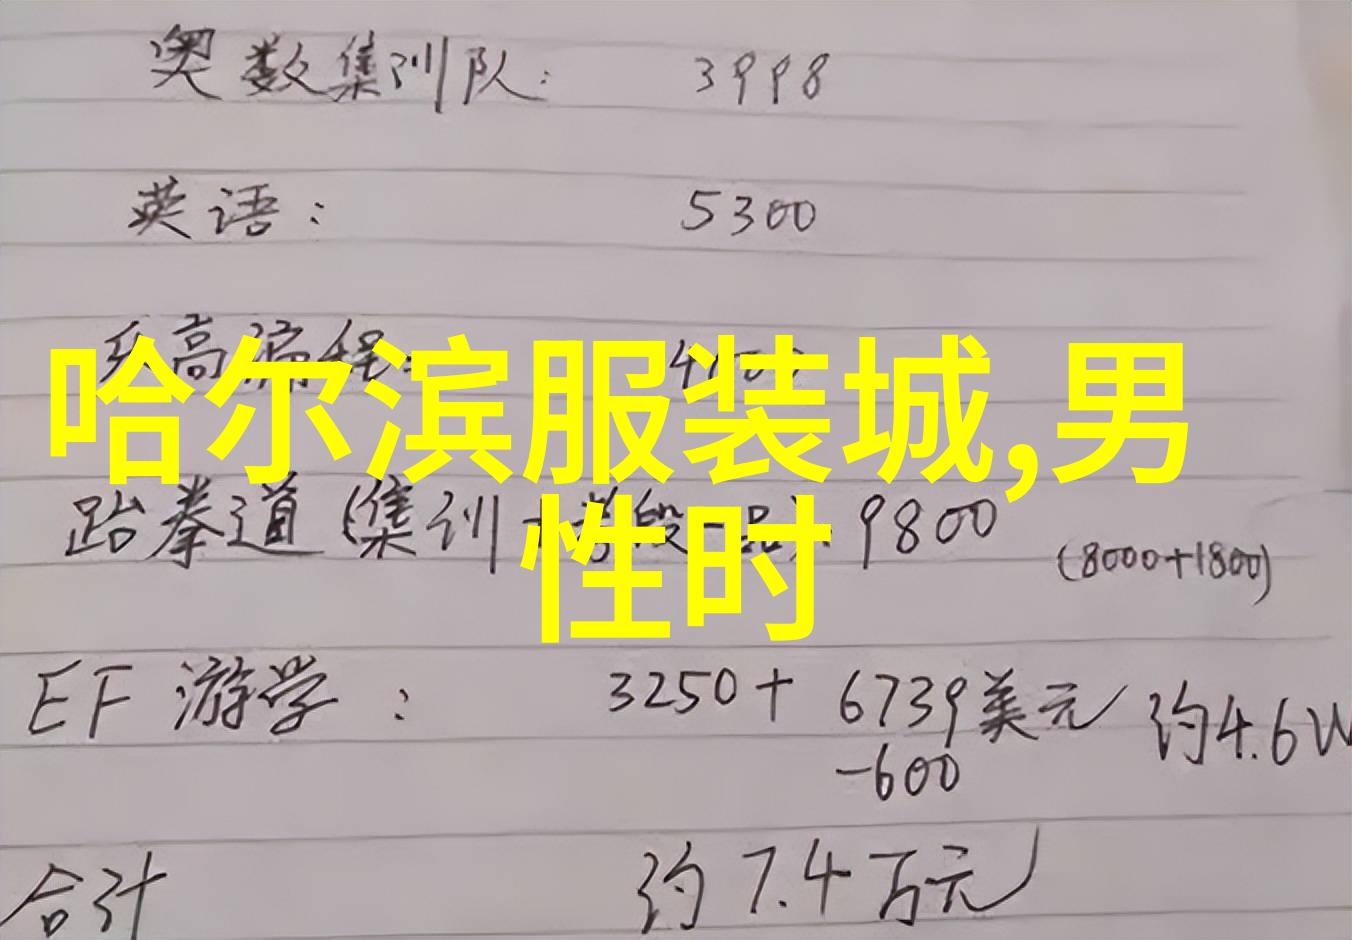 奥数集训队: 3998
英语: 5300
乐高编程:
哈尔滨服装城,男
性时
跆拳道(集训+考段 9800 (8000+1800)
EF 游学: 3250+ 6739美元 约4.6W
-600
合计 约7.4万元